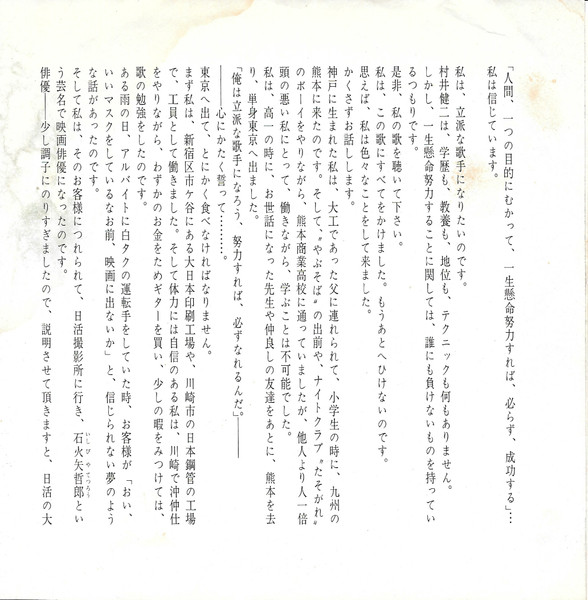 「人間、一つの目的にむかって、一生懸命努力すれば、必らず、成功する」…
私は信じています。
私は、立派な歌手になりたいのです。
村井健二は、学歴も、教養も、地位も、テクニックも何もありません。
しかし、一生懸命努力することに関しては、誰にも負けないものを持ってい
るつもりです。
是非、私の歌を聴いて下さい。
私は、この歌にすべてをかけました。もうあとへひけないのです。
思えば、私は色々なことをして来ました。
かくさずお話しします。
神戸に生まれた私は、大工であった父に連れられて、小学生の時に、九州の
熊本に来たのです。そして、〝やぶそば〟の出前や、ナイトクラブ〝たそがれ〟
のボーイをやりながら、熊本商業高校に通っていましたが、他人より人一倍
頭の悪い私にとって、働きながら、学ぶことは不可能でした。
私は、高一の時に、お世話になった先生や仲良しの友達をあとに、熊本を去
り、単身東京へ出ました。
「俺は立派な歌手になろう、努力すれば、必ずなれるんだ」――
――心にかたく誓って………。
東京へ出て、とにかく食べなければなりません。
まず私は、新宿区市ヶ谷にある大日本印刷工場や、川崎市の日本鋼管の工場
で、工員として働きました。そして体力には自信のある私は、川崎で沖仲仕
をやりながら、わずかのお金をためギターを買い、少しの暇をみつけては、
歌の勉強をしたのです。
ある雨の日、アルバイトに白タクの運転手をしていた時、お客様が「おい、
いいマスクをしているなお前、映画に出ないか」と、信じられない夢のよう
な話があったのです。
そして私は、そのお客様につれられて、日活撮影所に行き、石火矢哲郎とい
う芸名で映画俳優になったのです。
俳優――少し調子にのりすぎましたので、説明させて頂きますと、日活の大